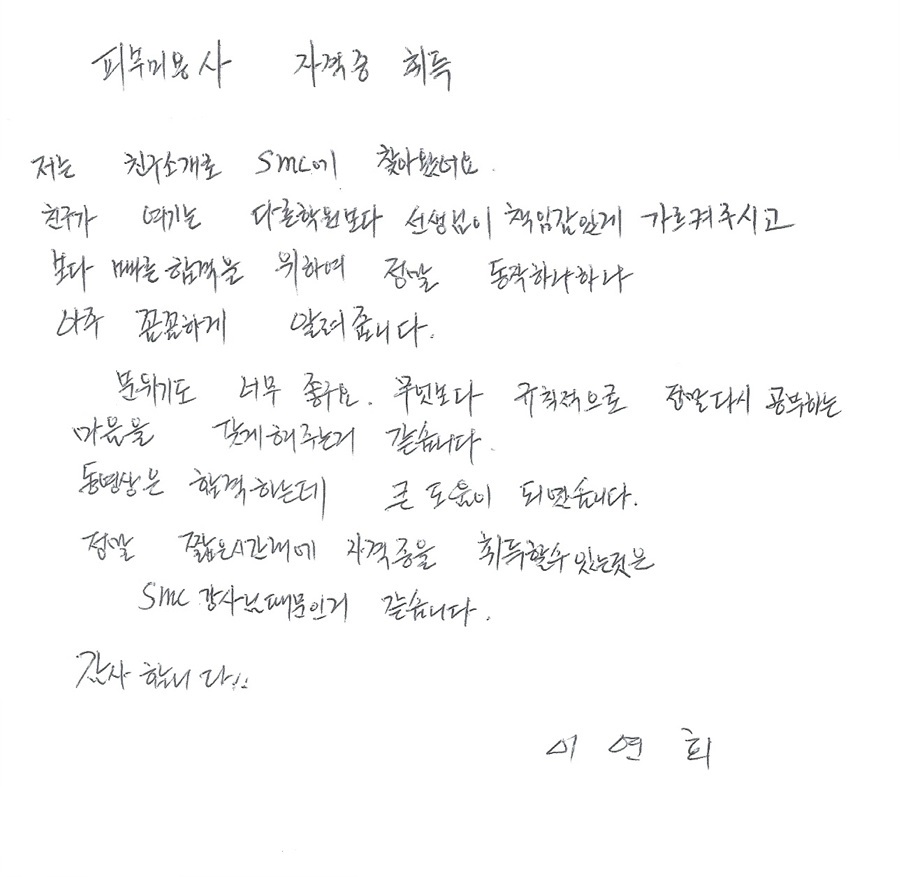 피부미용사 자격증 취득
저는 친구소개로 SMC에 찾아왔너요.
친구가 여기는 다른학원보다 선생님이 책임감있게 가르켜주시고
보다 빠른합격을 위하여 정말 동작하나하나
아주 꼼꼼하게 알려줍니다.
분위기도 너무 좋구요. 무엇보다 규칙적으로 정말다시 공부하는
마음을 갖게해주는거 같습니다.
동영상은 합격하는데 큰 도움이 되었습니다.
정말 짧은시간내에 자격증을 취득할수있는것은
SMC 강사님때문인거 같습니다.
감사합니다!!
이연희